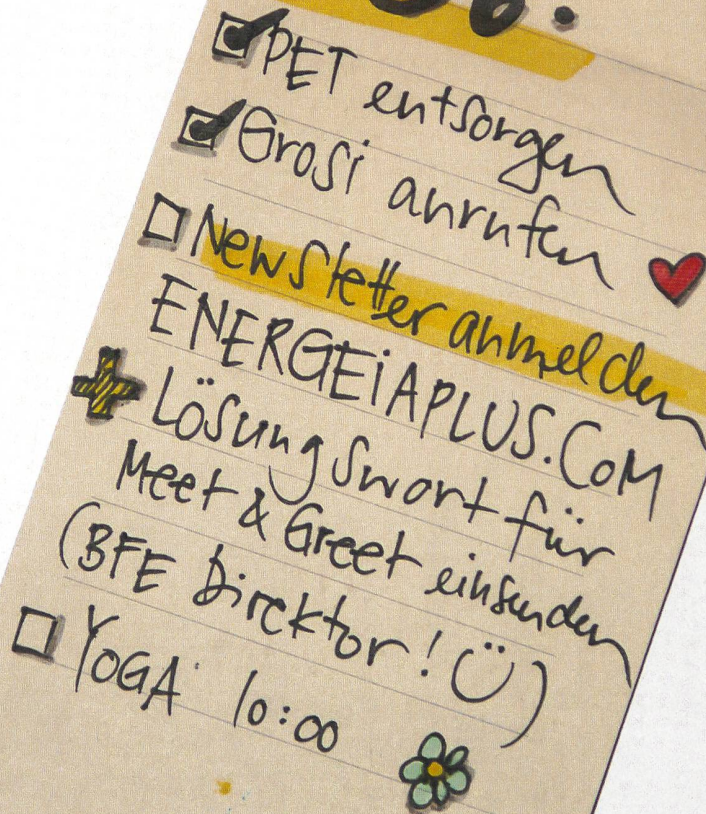 PET entsorgen
Grosi anrufen
Newsletter anmelden
ENERGEiAPLUS.COM
Lösungswort für
Meet & Greet einsenden
(BFE Direktor! ☺)
YOGA 10:00